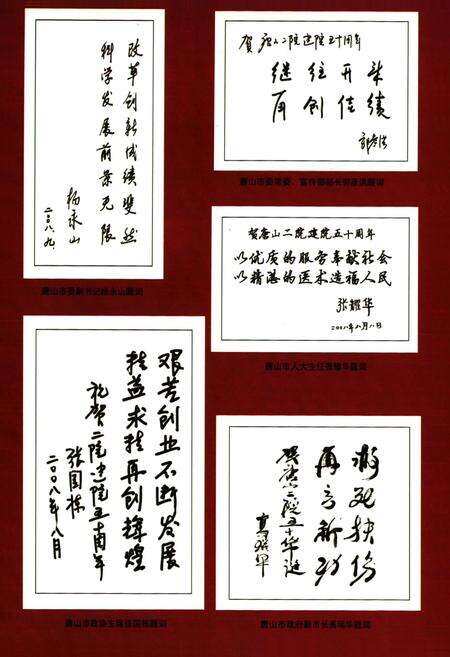 改革创新成绩斐然
科学发展前景无限
杨永山
二〇〇八.九.
唐山市委副书记杨永山题词
贺唐山二院建院五十周年
继往开来
再创佳绩
郭彦洪
唐山市委常委、宣传部部长郭彦洪题词
贺唐山二院建院五十周年
以优质的服务奉献社会
以精湛的医术造福人民
张耀华
2008年八月八日
唐山市人大主任张耀华题词
艰苦创业不断发展
精益求精再创辉煌
祝贺二院建院五十周年
张国栋
二〇〇八年八月
唐山市政协主席张国栋题词
救死扶伤
再立新功
贺唐山二院五十华诞
高瑞华
唐山市政府副市长高瑞华题词